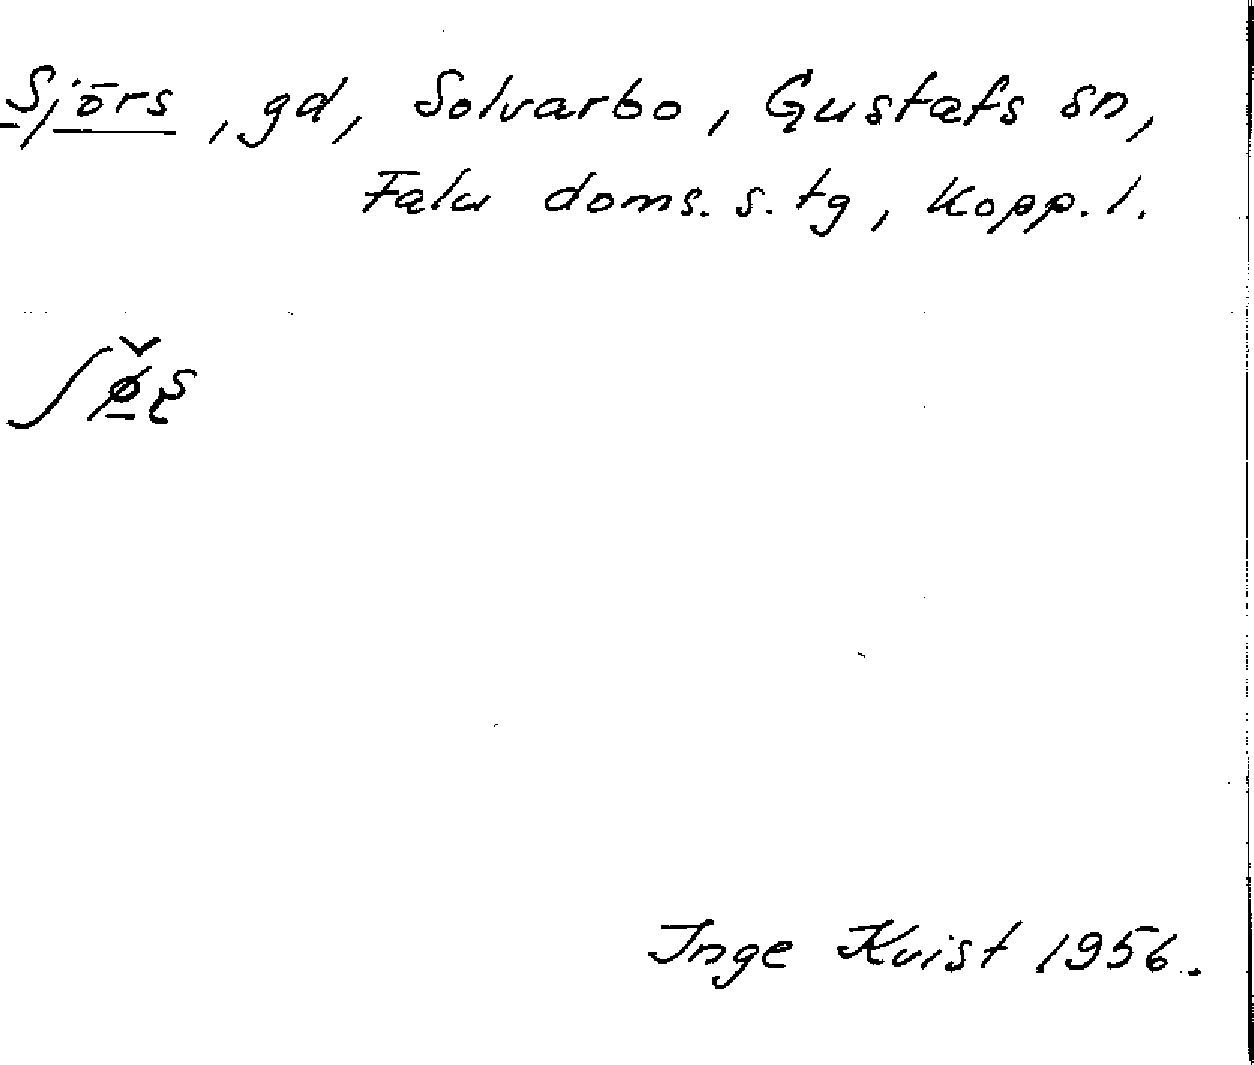 Sjörs, gd, Solvarbo, Gustafs sn,
Falu doms. s. tg, Kopp. l.
Inge Kvist 1956.